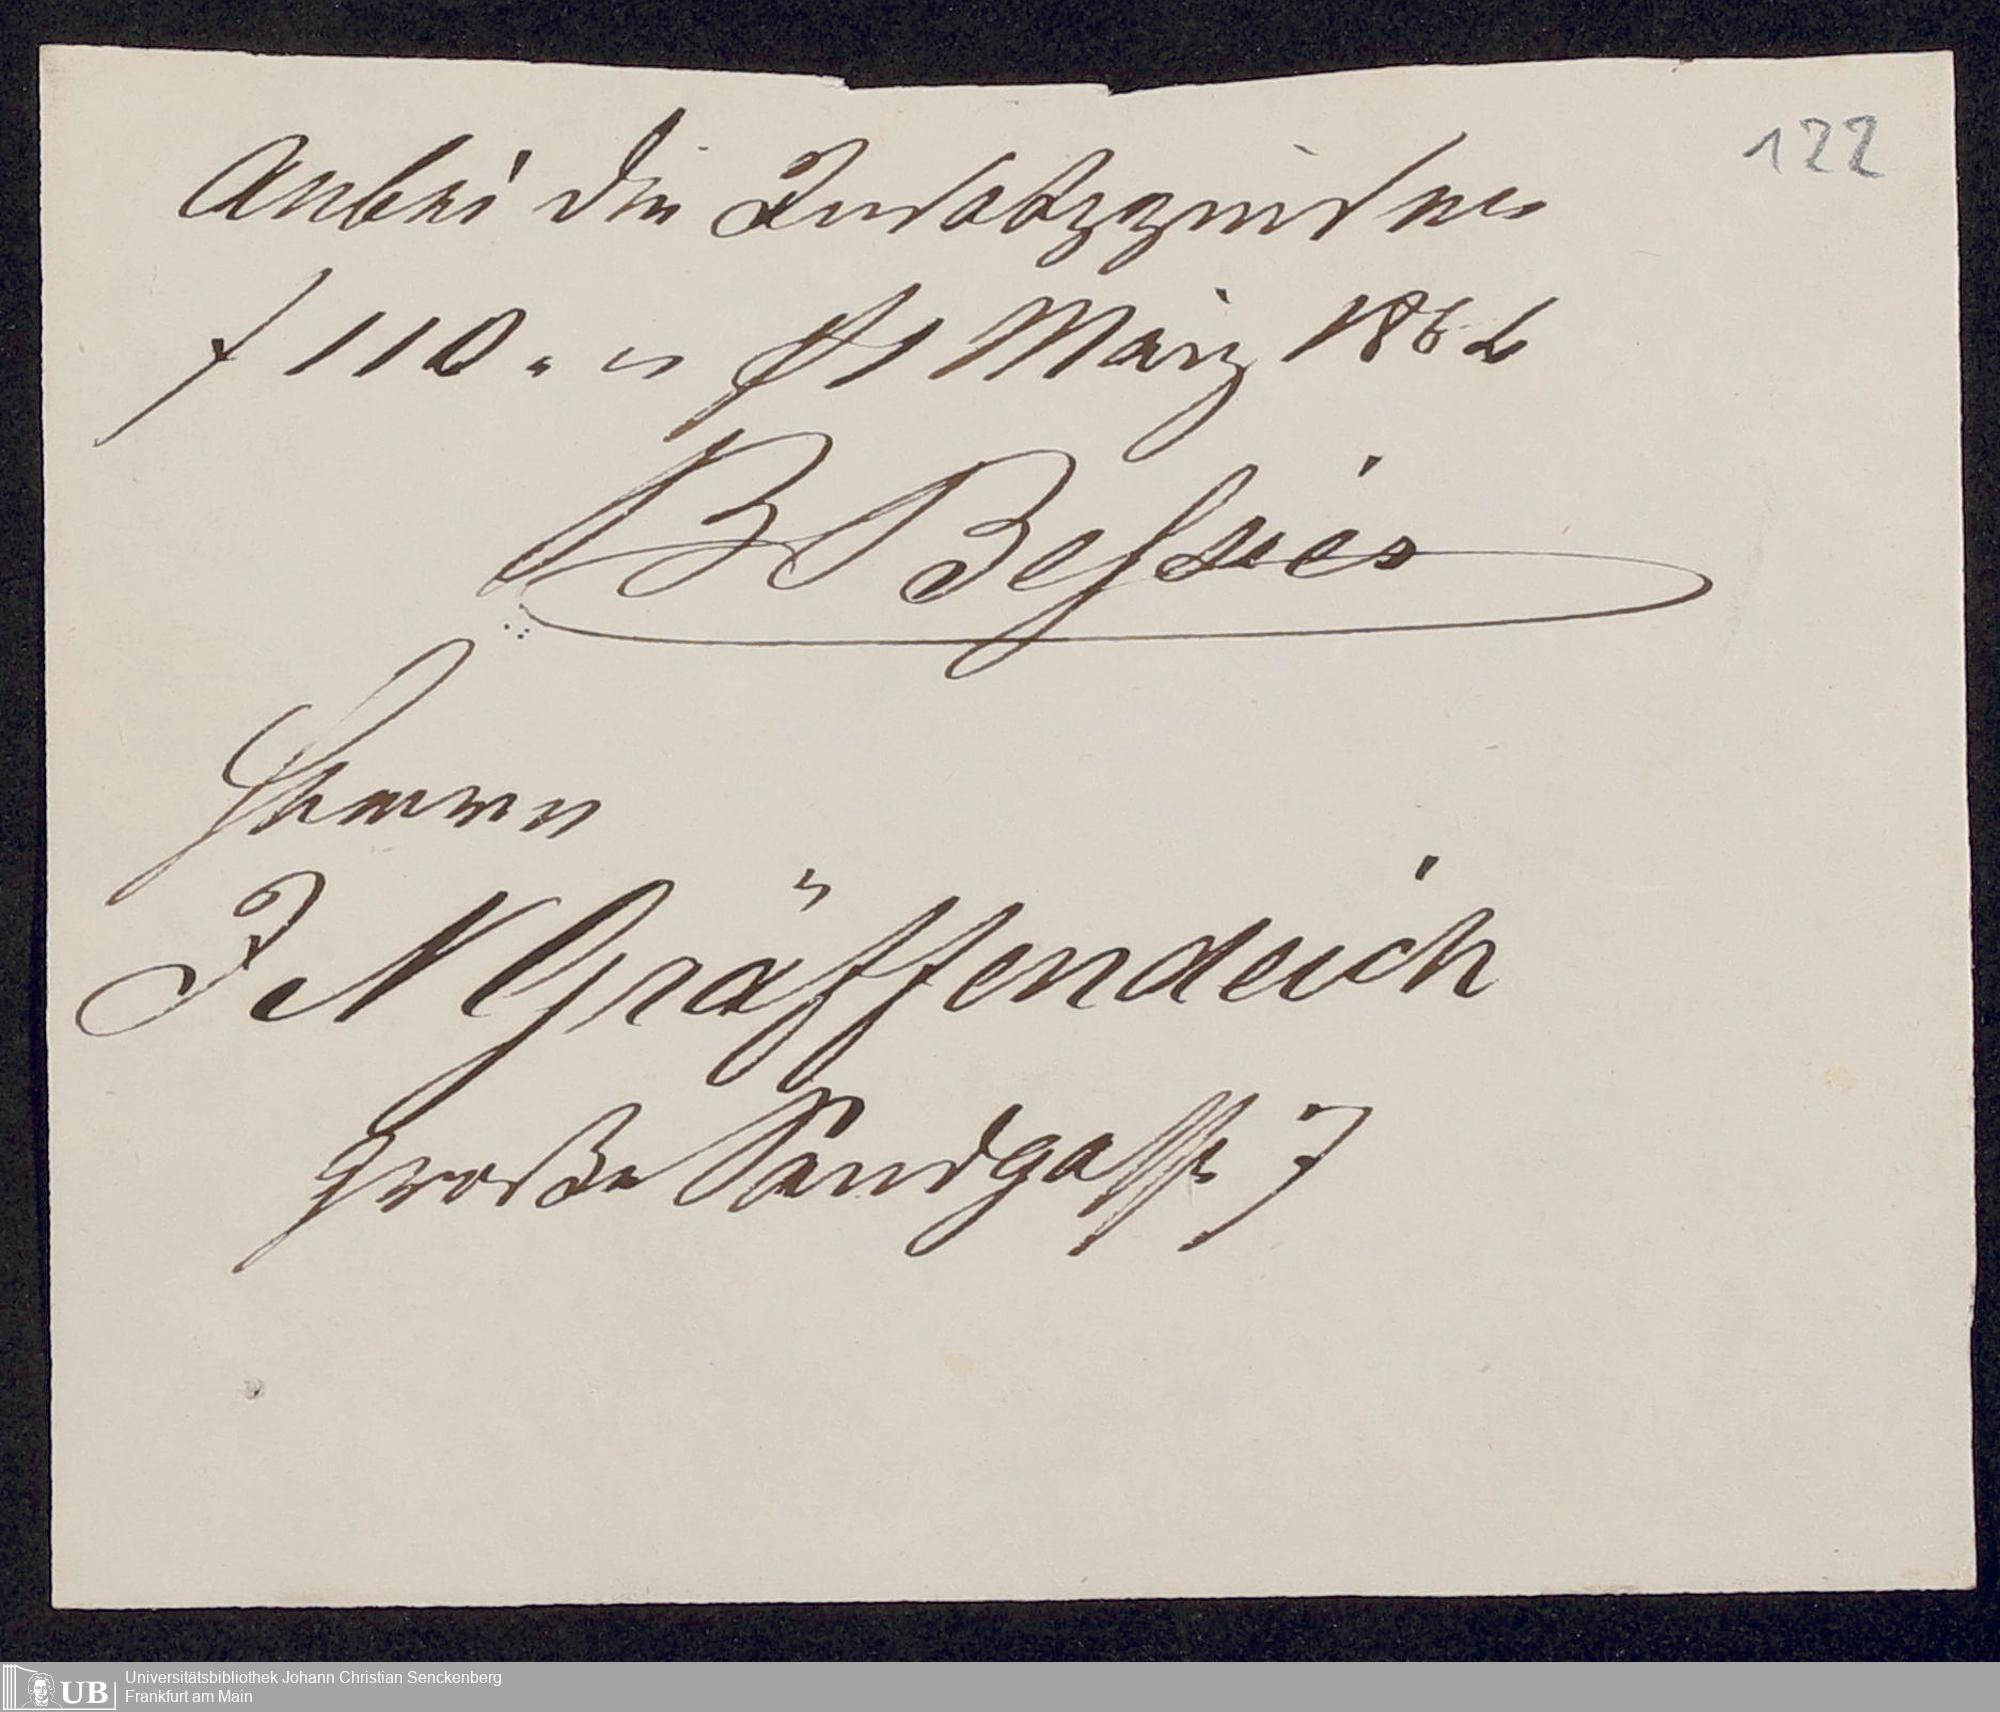 122
Anbei die Insatzzinsen
f 110.„ „ pr 1 März 1862
B Besier
Herrn
J N Gräffendeich
Große Sandgasse 7
UB
Universitätsbibliothek Johann Christian Senckenberg
Frankfurt am Main